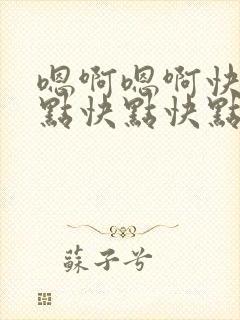 嗯啊嗯啊快
點快點快點
蘇子兮